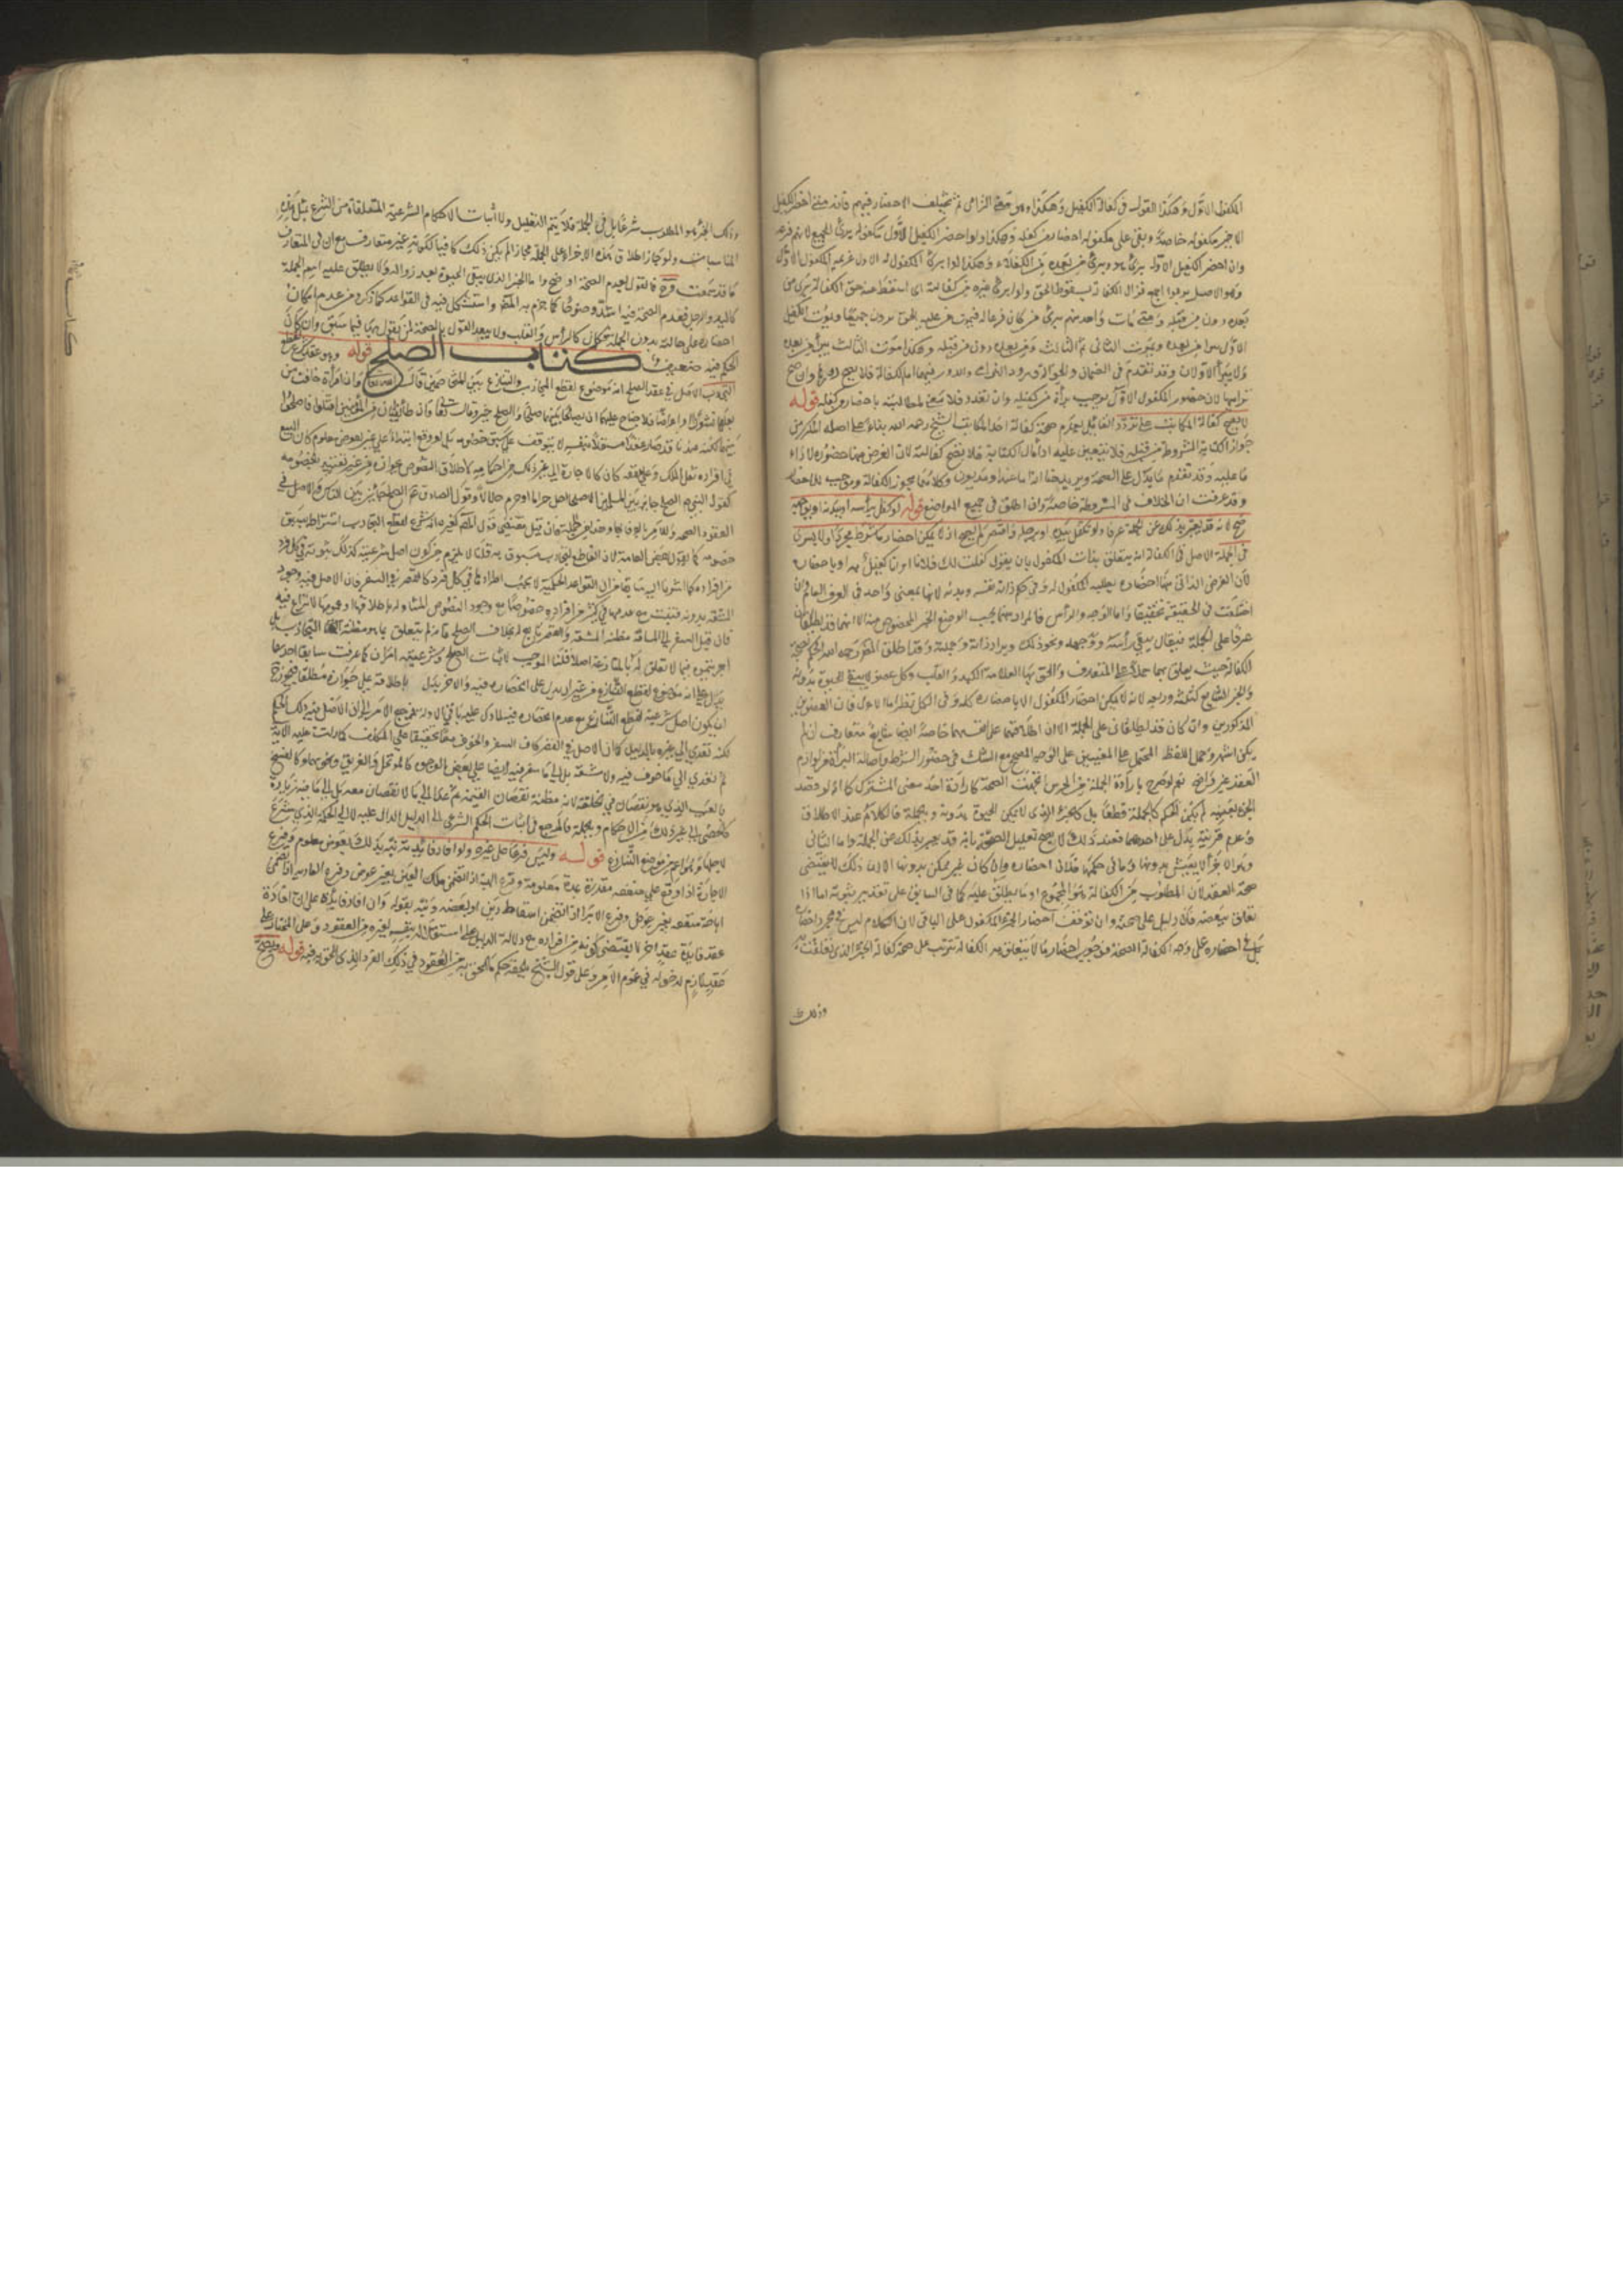 المكفول الاول وهكذا القول في كفالة الكفيل وهكذا وهو معنى الترامي ثم تختلف الاحضار فيهم فانه متى احضر الكفيل
الاخير مكفوله خاصة وبقي على مكفوله احضار من كفله وهكذا ولو احضر الكفيل الاول مكفوله برئ الجميع لانهم فرعه
وان احضر الكفيل الاول برئ هو وبرئ من بعده من الكفلاء وهكذا لو ابرئ المكفول له الاول غريمه المكفول الاول
وهو الاصيل برءوا اجمع لزوال الكفالة بسقوط الحق ولو ابرئ غيره من كفالته اي اسقط عنه حق الكفالة برئ من
بعده دون من قبله ومتى مات واحد منهم برئ من كان فرعا له فبموت من عليه الحق يبرؤن جميعا وبموت الكفيل
الاول يبرأ من بعده وبموت الثاني يبرأ الثالث ومن بعده دون من قبله وهكذا موت الثالث يبرأ من بعده
ولا يبرأ الاولان وقد تقدم في الضمان والحوالة ورود الترامي والدور فيهما اما الكفالة فلا يصح دورها وان صح
تراميها لان حضور المكفول الاول يوجب براءة من كفله وان تعدد فلا معنى لمطالبته باحضار من كفله قوله
لا يصح كفالة المكاتب على تردد القائل بعدم صحة كفالة المكاتب الشيخ رحمه الله بناء على اصله المتكرر من
جواز الكتابة المشروطة من قبله فلا يتعين عليه اداء مال الكتابة فلا يصح كفالته لان الغرض منها حضوره لاداء
ما عليه وقد تقدم ما يدل على الصحة ويزيد هنا انا ما عبد او مديون وكلاهما يجوز الكفالة وموجب للاحضار
وقد عرفت ان الخلاف في المشروطة خاصة وان اطلق في جميع المواضع قوله لو كفل برأسه او بدنه او بوجهه
صح لانه قد يعبر بذلك عن الجملة عرفا ولو تكفل بيده او برجله واقتصر لم يصح اذ لا يمكن احضار ما شرط مجردا ولا يسري
الى الجملة الاصل في الكفالة انه يتعلق بذات المكفول بان يقول كفلت لك فلانا او انا كفيل به او باحضاره
لان الغرض الذاتي منها احضاره يطلبه المكفول له وفي حكم ذاته نفسه وبدنه لانها بمعنى واحد في العرف العام وان
اختلفت في الحقيقة تحقيقا واما الوجه والرأس فالمراد منهما بحسب الوضع الجزء المخصوص منه الا انهما قد يطلقان
عرفا على الجملة فيقال بقي رأسه ووجهه ونحو ذلك ويراد ذاته وجملته وقد اطلق المصنف رحمه الله الحكم بصحة
الكفالة حيث يعلق بهما حملا على المتعارف والحق بها العلامة الكبد والقلب وكل عضو لا يبقى الحيوة بدونه
والجزء الشايع كثلثه وربعه لانه لا يمكن احضار المكفول الا باحضاره كله وفي الكل نظر اما الاول فلان العضوين
المذكورين وان كان قد يطلقان على الجملة الا ان اطلاقهما على انفسهما خاصة ايضا شايع متعارف ان لم
يكن اشهر وحمل اللفظ المحتمل على المعنيين على الوجه المصحح مع الشك في حصول الشرط واصالة البراءة من لوازم
العقد غير واضح نعم لو صرح بارادة الجملة من الجزئين اتجهت الصحة كارادة احد معنى المشترك كما انه لو قصد
الجزء بعينه لم يكن الحكم كالجملة قطعا بل كالجزء الذي لا يمكن الحيوة بدونه وبالجملة فالكلام عند الاطلاق
وعدم قرينة يدل على احدهما فعند ذلك لا يصح تعليل الصحة بانه قد يعبر بذلك عن الجملة واما الثاني
وهو الاجزاء التي لا يعيش بدونها وما في حكمها فلان احضاره وان كان غير ممكن بدونها الا ان ذلك لا يقتضي
صحة العقد لان المطلوب من الكفالة هو المجموع او ما يطلق عليه كما في السابق على تقدير ثبوته اما اذا
تعلق ببعضه فلا دليل على صحته وان توقف احضار الجزء المكفول على الباقي لان الكلام ليس في مجرد احضاره
بل في احضاره على وجه الكفالة الصحيحة فوجوب احضار ما لا يتعلق به الكفالة يترتب على صحة كفالة الجزء الذي تعلقت به
وذلك
وذلك الجزء هو المطلوب شرعا بل في الجملة فلا يتم التعليل ولا اثبات الاحكام الشرعية المتلقاة من الشرع بمثل هذه
المناسبات ولو جاز اطلاق هذه الاجزاء على الجملة مجازا لم يكن ذلك كافيا لكونه غير متعارف مع ان في المتعارف
ما قد سمعت فالقول بعدم الصحة اوضح واما الجزء الذي يبقى الحيوة بعد زواله ولا يطلق عليه اسم الجملة
كاليد والرجل فعدم الصحة فيه اشد وضوحا كما جزم به المصنف واستشكل فيه في القواعد كما ذكره من عدم امكان
احضاره على حالته بدون الجملة فكان كالرأس والقلب ولا يبعد القول بالصحة لمن يقول بها فيما سبق وان كان
الحكم فيه ضعيفا كتاب الصلح قوله وهو عقد شرع لقطع
التجاذب الاصل في عقد الصلح انه موضوع لقطع التجاذب والتنازع بين المتخاصمين قال الله تعالى وان امرأة خافت من
بعلها نشوزا او اعراضا فلا جناح عليهما ان يصلحا بينهما صلحا والصلح خير وقال تعالى وان طائفتان من المؤمنين اقتتلوا فاصلحوا
بينهما لكنه عندنا قد صار عقدا مستقلا بنفسه لا يتوقف على سبق خصومة بل لو وقع ابتداء على عين بعوض معلوم كان كالبيع
في افادة نقل الملك وعلى منفعة كان كالاجارة الى غير ذلك من احكامه لاطلاق النصوص بجوازه من غير تقييد بالخصومة
كقول النبي ص الصلح جائز بين المسلمين الا صلحا احل حراما او حرم حلالا وقول الصادق ع الصلح جائز بين الناس والاصل في
العقود الصحة وللامر بالوفاء بها وهذا من الجملة فان قيل مقتضى قول المصنف كغيره انه شرع لقطع التجاذب اشتراطه بسبق
خصومة كما يقول بعض العامة لان القاطع لتجاذب مسبوق به قلنا لا يلزم من كون اصل شرعيته كذلك ثبوته في كل فرد
من افراده كما اشرنا اليه سابقا من ان القواعد الحكمية لا يجب اطرادها في كل فرد كالقصر في السفر فان الاصل فيه وجود
المشقة بدونه فتثبت مع عدمها في كثير من افراده وخصوصا مع وجود النصوص المتناولة باطلاقها او عمومها لانتزاع فيه
فان قيل السفر الى المسافة مظنة المشقة والقصر تابع له بخلاف الصلح فانه لم يتعلق بما هو مظنة التجاذب بل
اجريتموه فيما لا تعلق له بالمنازعة اصلا قلنا الموجب لاثبات الصلح وشرعيته امران كما عرفت سابقا احدهما
يدل على انه موضوع لقطع التنازع من غير ان يدل على انحصاره فيه والآخر يدل باطلاقه على جوازه مطلقا فيجوز ح
ان يكون اصل شرعيته لقطع التنازع مع عدم انحصاره فيه لما دل عليه باقي الادلة فمرجع الامر الى ان الاصل فيه ذلك الحكم
لكنه تعدى الى غيره بالدليل كما ان الاصل في القصر كان السفر والخوف معا تخفيفا على المكلف كما دلت عليه الآية
ثم تعدى الى ما لا خوف فيه ولا مشقة بل الى ما سفر فيه ايضا على بعض الوجوه كالموتحل والغريق ونحوهما وكالفسخ
بالعيب الذي هو نقصان في الخلقة لانه مظنة نقصان القيمة ثم عدي الى ما لا نقصان معه بل الى ما فيه زيادة
كالخصي الى غير ذلك من الاحكام وبالجملة فالمرجع في اثبات الحكم الشرعي الى الدليل الدال عليه لا الى الحكمة الذي شرع
لاجلها وهو اعم من موضع التنازع قوله وليس فرعا على غيره ولو افاد فائدته نبه بذلك بعوض معلوم وفرع
الاجارة اذا وقع على منفعة مقدرة بمدة معلومة وفرع الهبة اذا تضمن ملك العين بغير عوض وفرع العارية اذا تضمن
اباحة منفعة بغير عوض وفرع الابراء اذا تضمن اسقاط دين او بعضه ونبه بقوله وان افاد فائدته على ان افادة
عقد فائدة عقد آخر لا يقتضي كونه من افراده مع دلالة الدليل على استقلاله بنفسه لغيره من العقود وعلى المختار
عقد لازم لدخوله في عموم الامر وعلى قول الشيخ يلحقه حكم ما لحق به من العقود في ذلك الفرد الذي لحق به فيه قوله ويصح